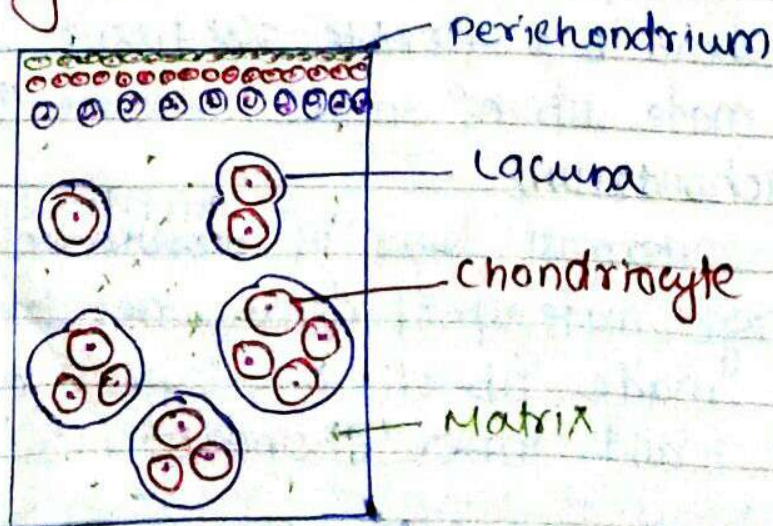 Perichondrium
Lacuna
Chondriocyte
Matrix